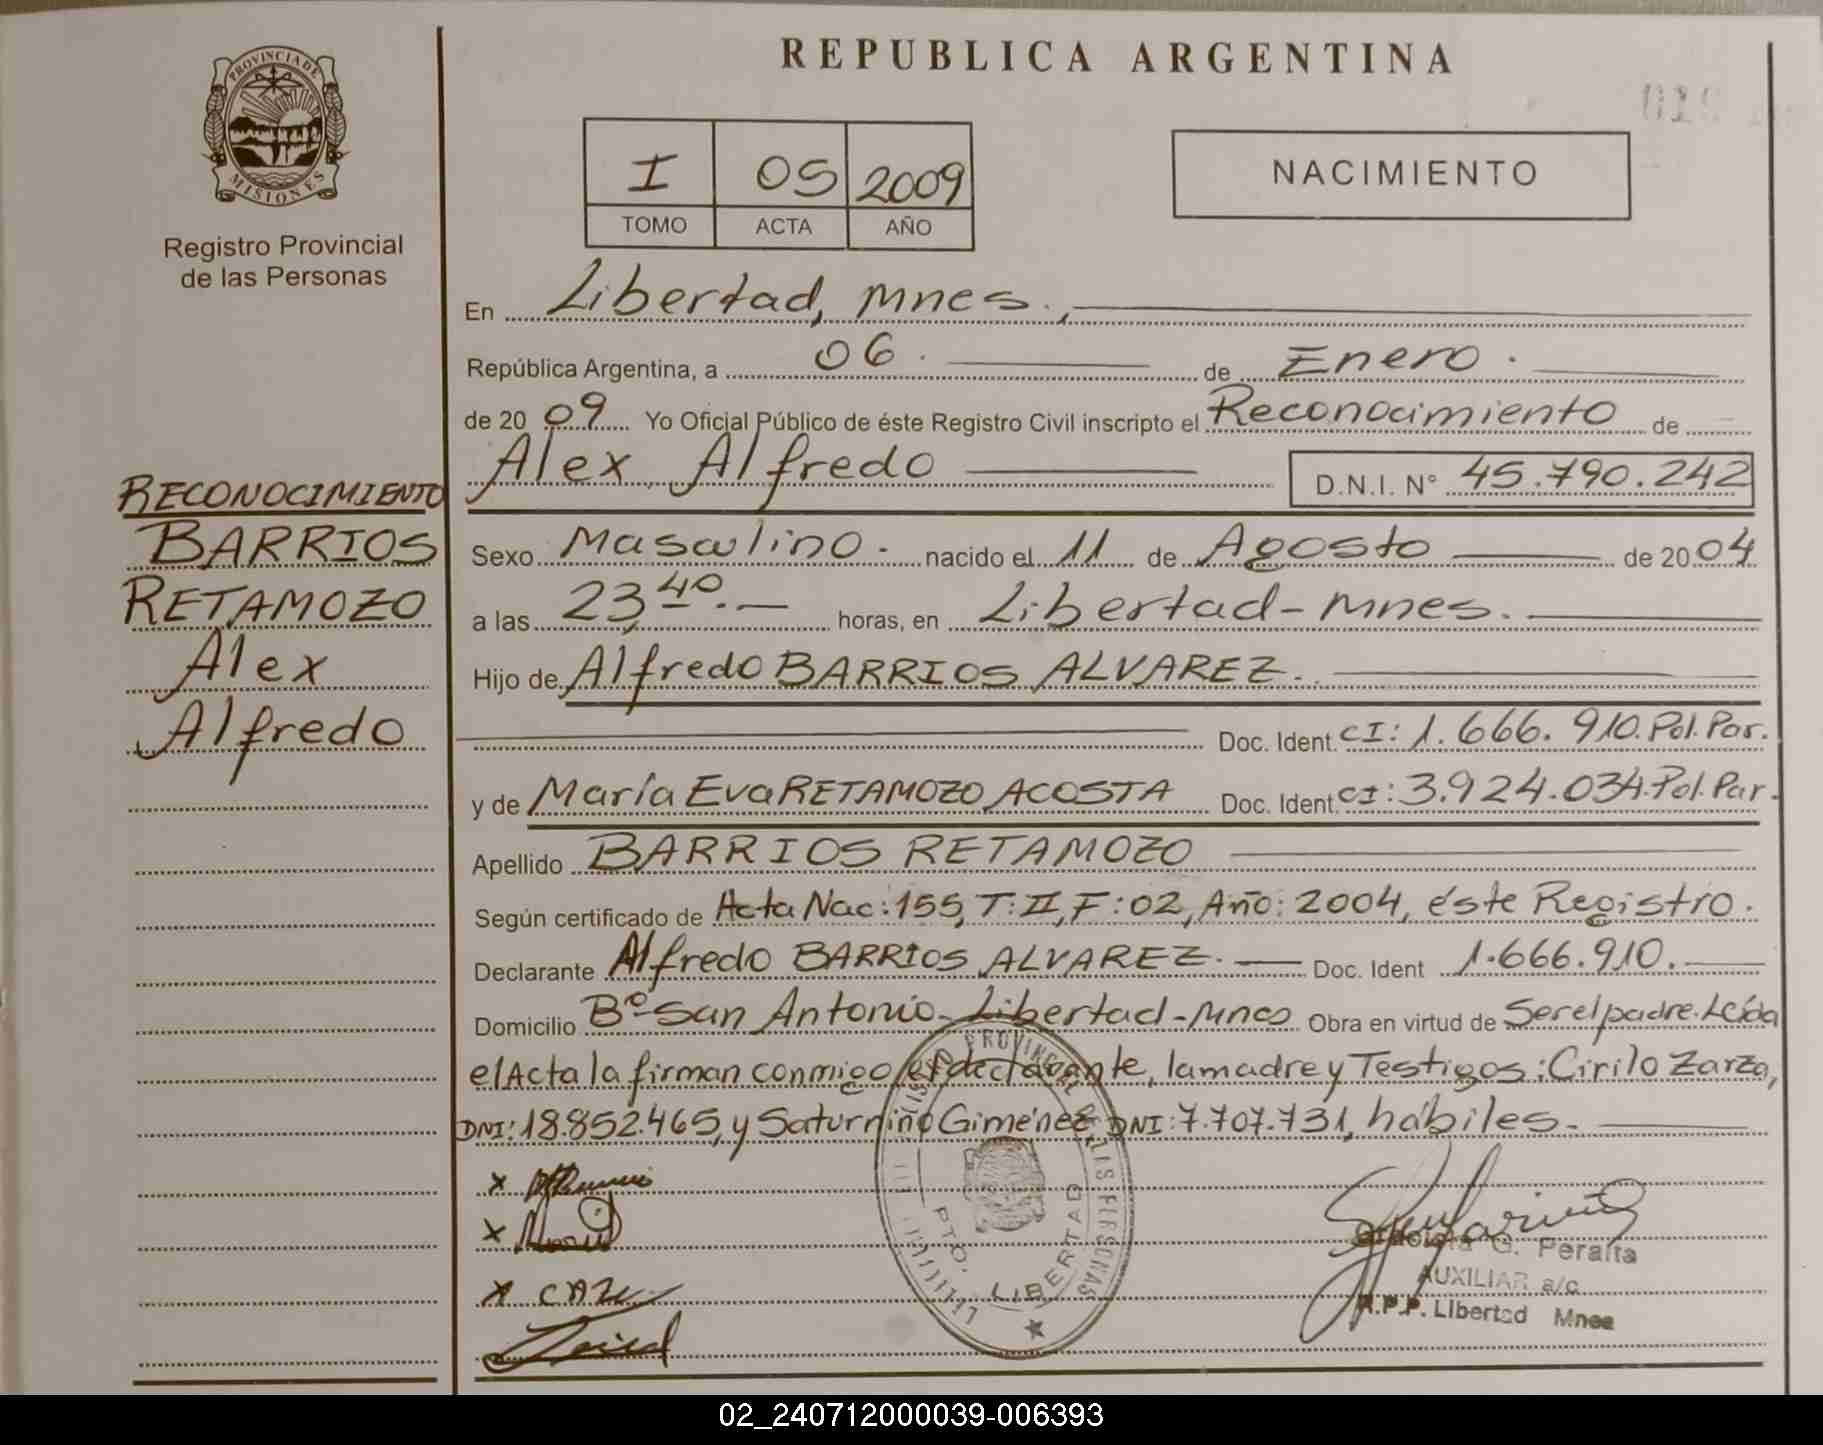 REPUBLICA ARGENTINA
PROVINCIA DE
MISIONES
Registro Provincial
de las Personas
I 05 2009
TOMO ACTA AÑO
NACIMIENTO
En Libertad, Mnes.,
República Argentina, a 06. de Enero.
de 2009 Yo Oficial Público de éste Registro Civil inscripto el Reconocimiento de
Alex Alfredo D.N.I. N° 45.790.242
RECONOCIMIENTO
BARRIOS
RETAMOZO
Alex
Alfredo
Sexo Masculino. nacido el 11 de Agosto de 2004
a las 23,40.- horas, en Libertad-Mnes.
Hijo de Alfredo BARRIOS ALVAREZ.
Doc. Ident. CI: 1.666.910.Pol.Par.
y de María Eva RETAMOZO ACOSTA Doc. Ident. CI: 3.924.034.Pol.Par.
Apellido BARRIOS RETAMOZO
Según certificado de Acta Nac: 155, T: II, F: 02, Año: 2004, éste Registro.
Declarante Alfredo BARRIOS ALVAREZ. Doc. Ident 1.666.910.
Domicilio B° San Antonio-Libertad-Mnes Obra en virtud de Ser el padre. Leída
el Acta la firman conmigo el declarante, la madre y Testigos: Cirilo Zarza,
DNI: 18.852.465, y Saturnino Giménez, DNI: 7.707.731, hábiles.-
PTO. LIBERTAD
G. Peralta
AUXILIAR a/c
R.P.P. Libertad Mnes
02_240712000039-006393